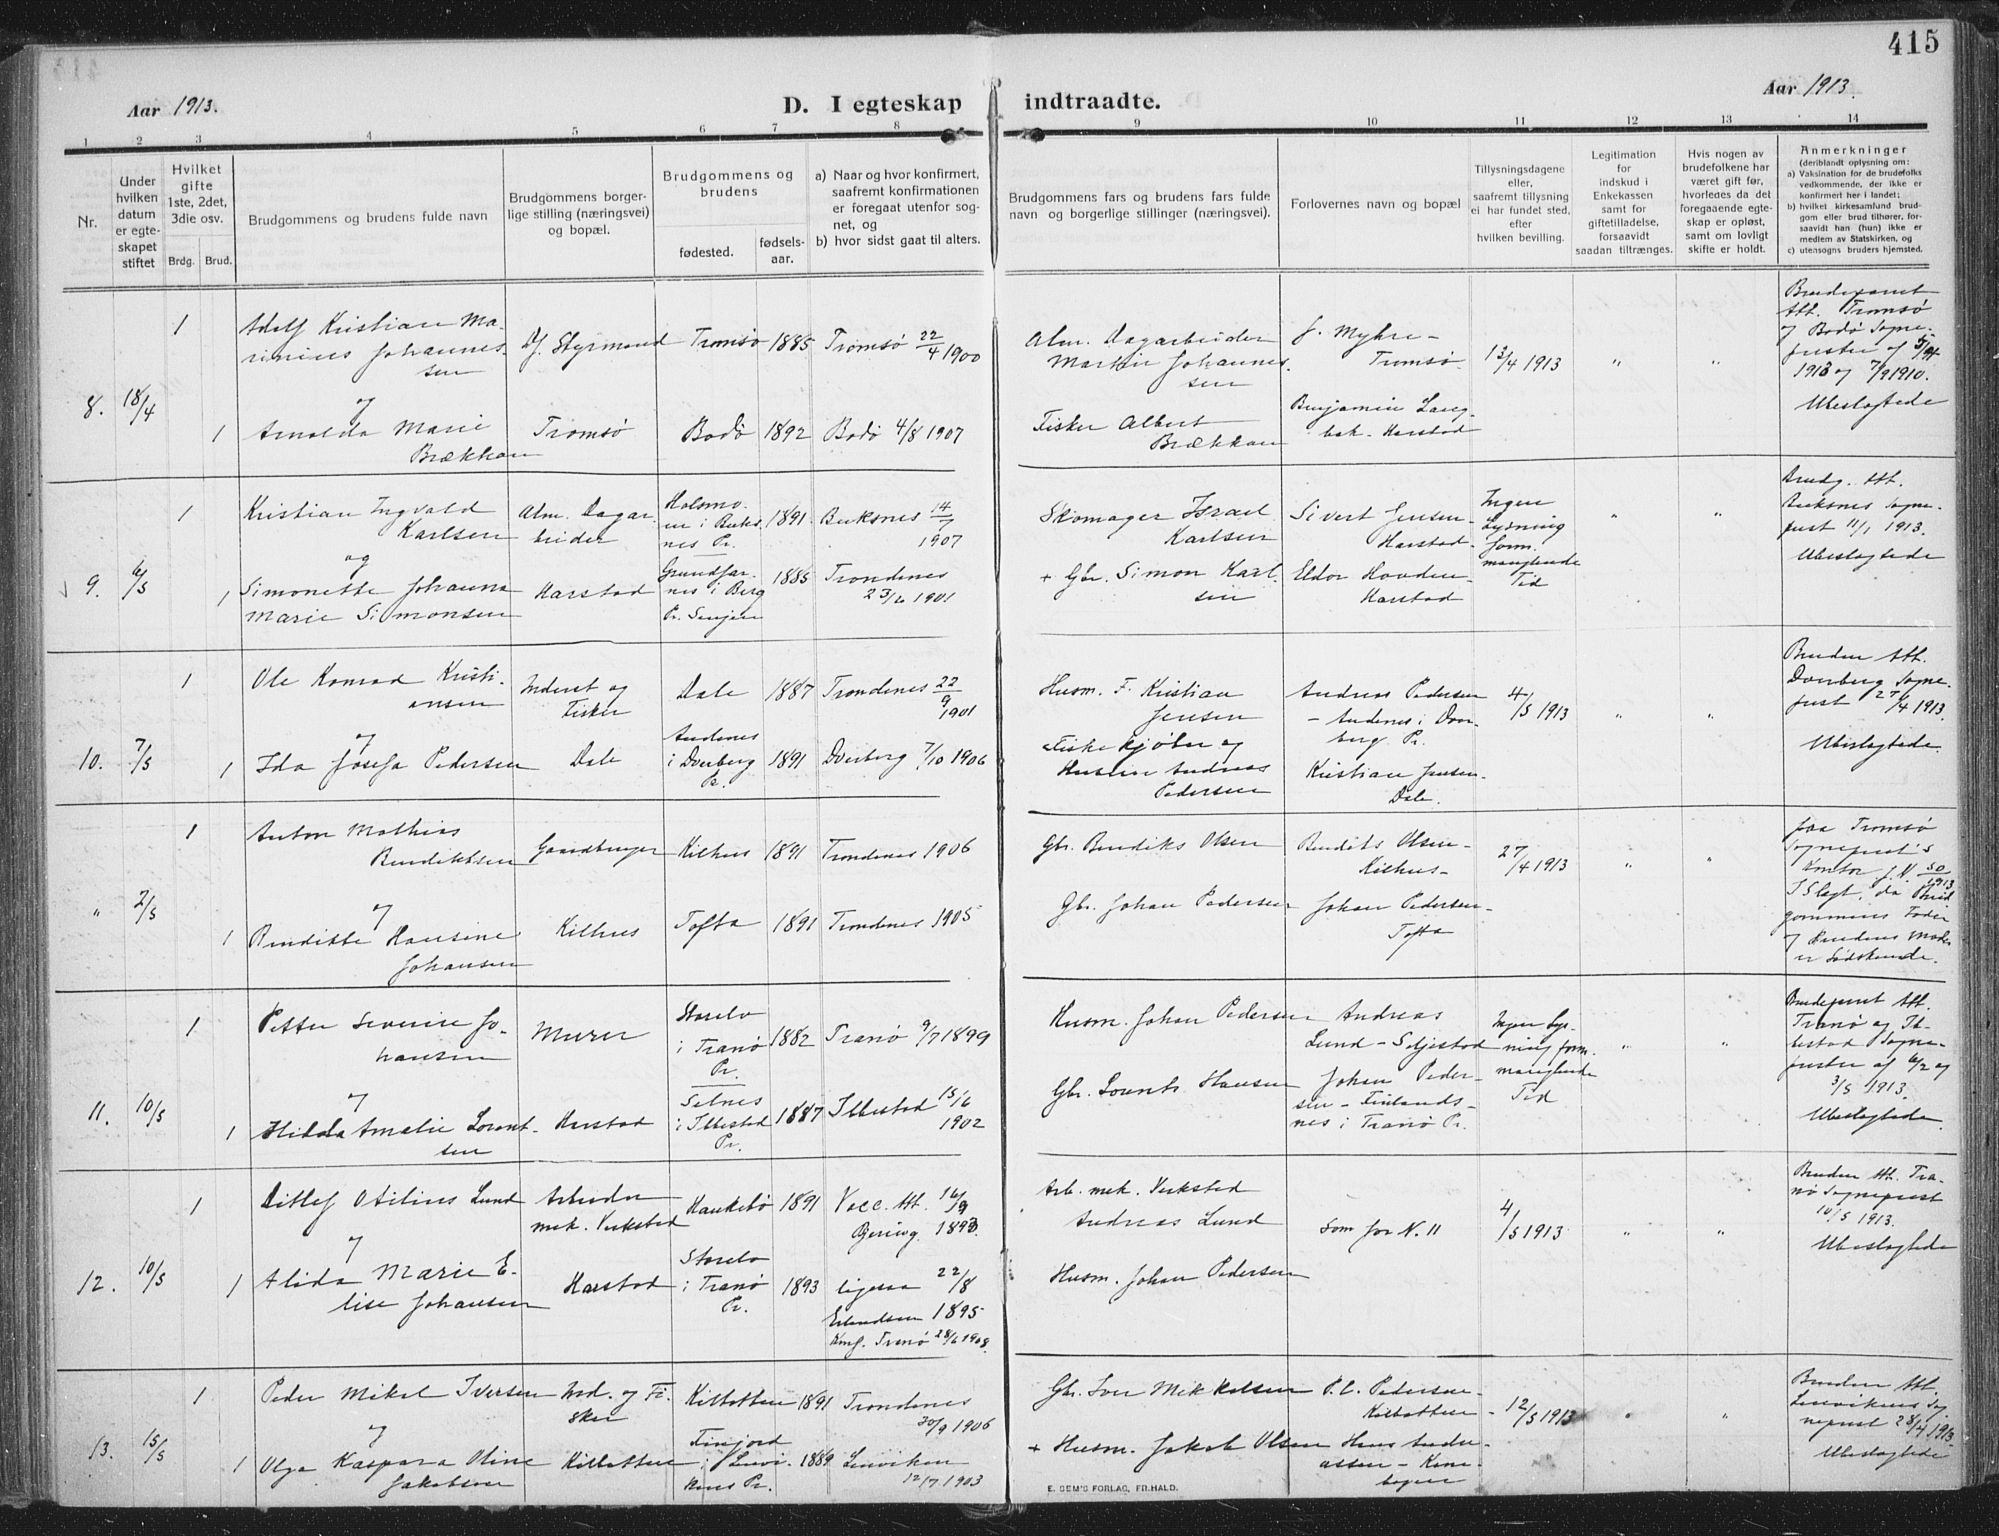 415
Aar 1913.
D. I egteskap indtraadte.
Aar 1913.
1 2 3 4 5 6 7 8 9 10 11 12 13 14
Nr.
Under hvilken datum er egte- skapet stiftet
Hvilket gifte 1ste, 2det, 3die osv.
Brdg. Brud.
Brudgommens og brudens fulde navn
Brudgommens borger- lige stilling (næringsvei) og bopæl.
Brudgommens og brudens
fødested.
fødsels- aar.
a) Naar og hvor konfirmert, saafremt konfirmationen er foregaat utenfor sog- net, og
b) hvor sidst gaat til alters.
Brudgommens fars og brudens fars fulde navn og borgerlige stillinger (næringsvei).
Forlovernes navn og bopæl
Tillysningsdagene eller, saafremt tillysning ei har fundet sted, efter hvilken bevilling.
Legitimation for indskud i Enkekassen samt for giftetilladelse, forsaavidt saadan tiltrænges.
Hvis nogen av brudefolkene har været gift før, hvorledes da det foregaaende egte- skap er opløst, samt om lovligt skifte er holdt.
Anmerkninger
(deriblandt oplysning om:
a) Vaksination for de brudefolks vedkommende, der ikke er konfirmert her i landet;
b) hvilket kirkesamlund brud- gom eller brud tilhører, for- saavidt han (hun) ikke er medlem av Statskirken, og
c) utensogns bruders hjemsted.
8. 18/4
1
Adolf Kristian Ma-
rinius Johannes-
sen
Styrmand
Tromsø 1885 Tromsø 22/4 1900
Alm. Dagarbeider
Martin Johannes-
sen
J. Myhre -
Tromsø
13/4 1913
" "
Brudeparret
Att. Tromsø
og Bodø Sogne-
prester af
1913 og 7/9 1910.
Ubeslagtede
og
1 Arnolda Marie
Brækkan
Tromsø
Bodø 1892 Bodø 4/8 1907
Fisker Albert
Brækkan
Benjamin Lang-
bak - Harstad
9. 6/5
1
Kristian Ingvald
Karlsen
Alm. Dagar-
beider
i Buks-
nes Pr.
1891 Buksnes 14/7
1907
Skomager Israel
Karlsen
Sivert Jensen -
Harstad
Ingen
Lysning
form.
manglende
Tid
" "
Brudg. Att.
Buksnes Sogne-
prest 11/1 1913.
Ubeslagtede
og
1 Simonette Johanna
Marie Simonsen
Harstad
Grundfar-
nes i Berg
Pr. Senjen
1885 Trondenes
23/6 1901
+ Gbr. Simon Karl-
sen
Eldor Hovden -
Harstad
10. 7/5
1
Ole Konrad Kristi-
ansen
Inderst og
Fisker
Dale 1887 Trondenes 22/9
1901
Husm. F. Kristian
Jensen
Andreas Pedersen
- Andenes i Dver-
berg Pr.
4/5 1913
" "
Bruden Att.
Dverberg Sogne-
prest 27/4 1913.
Ubeslagtede.
og
1 Ida Josefa Pedersen
Dale
Andenes
i Dverberg
Pr.
1891 Dverberg 7/10 1906
Fiskekjøber og
Andreas
Pedersen
Kristian Jensen -
Dale.
" 7/5
1
Anton Mathias
Bendiktsen
Gaardbruger
Kilhus 1891 Trondenes 1906
Gbr. Bendiks Olsen
Bendiks Olsen -
Kilhus -
27/4 1913
" "
paa Tromsø
Sogneprest's
Kontor J.N. 50/1913
I Slegt, da Brud-
gommens Fader
og Brudens Moder
er Sødskende.
og
1 Benditte Hansine
Johansen
Kilhus
Tofta 1891 Trondenes 1905
Gbr. Johan Pedersen
Johan Pedersen -
Tofta
11. 10/5
1
Petter Severin Jo-
hansen
Murer
Storelv
i Tranø
Pr.
1882 Tranø 9/7 1899
Husm. Johan Pedersen
Andreas
Lund - Seljestad
Ingen Lys-
ning form.
manglende
Tid
" "
Brudeparret Att.
Tranø og Ib-
bestad Sogne-
prester af 6/2 og
3/5 1913.
Ubeslagtede.
og
1 Hilda Amalie Lorent-
sen
Harstad
Selnes
i Ibbestad
Pr.
1887 Ibbestad 15/6
1902
Gbr. Lorents Hansen
Johan Peder-
sen - Finlands-
nes i Tranø Pr.
12. 10/5
1
Ditlef Otilius Lund
Arbeider
mek. Verksted
Kankebø 1891 Vacc. Att. 16/9
1893.
Arb. mek. Verksted
Andreas Lund
som for N. 11
4/5 1913
" "
Bruden Att. Tra-
nø Sogneprest
10/5 1913.
Ubeslagtede
og
1 Alida Marie E-
lise Johansen
Harstad
Storelv
i Tranø
Pr.
1893 ligesaa 22/8
Erlandsen 1895
Konf. Tranø 28/6 1908.
Husm. Johan Pedersen
13. 15/5
1
Peder Mikal Iversen
Ind. og Fi-
sker
Kilbotten 1891 Trondenes
30/9 1906
Gbr. Iver Mikkelsen
P. C. Pedersen -
Kilbotten
- 12/5 1913
" "
Bruden Att.
Lenvikens Sog-
neprest 28/4 1913.
Ubeslagtede
og
1 Olga Kaspara Oline
Jakobsen
Kilbotten
Finjord
i Lenvi-
kens Pr.
1889 Lenviken
12/7 1903
+ Husm. Jakob Olsen
Hans Andre-
assen - Kane-
bogen
E. SEM'S FORLAG, FR.HALD.